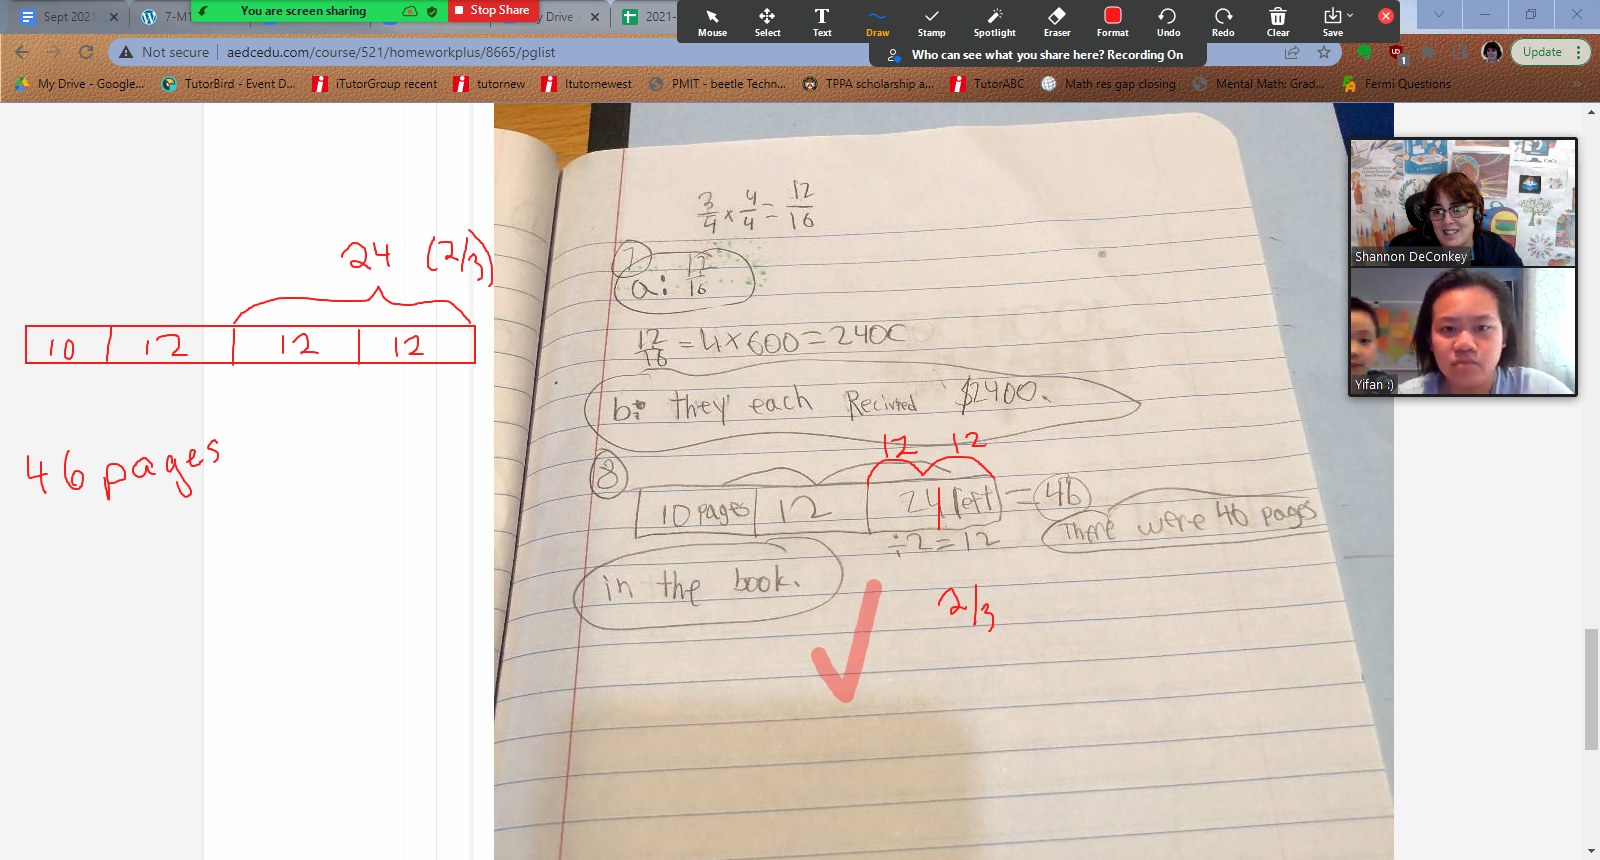 Sept 2021
7-M1
My Drive -
2021-
You are screen sharing
Stop Share
Mouse
Select
Text
Draw
Stamp
Spotlight
Eraser
Format
Undo
Redo
Clear
Save
Who can see what you share here? Recording On
Not secure
aedcedu.com/course/521/homeworkplus/8665/pglist
1
Update
My Drive - Google...
TutorBird - Event D...
iTutorGroup recent
tutornew
Itutornewest
PMIT - beetle Techn...
TPPA scholarship a...
TutorABC
Math res gap closing
Mental Math: Grad...
Fermi Questions
»
24 (2/3)
10 12 12 12
46 pages
3/4 x 4/4 = 12/16
7
a: 12/16
12/16 = 4 x 600 = 2400
b: they each Recivied $2400.
12 12
8
10 pages 12 24 left = 46
÷2=12
There were 46 pages
in the book.
2/3
Shannon DeConkey
Yifan :)